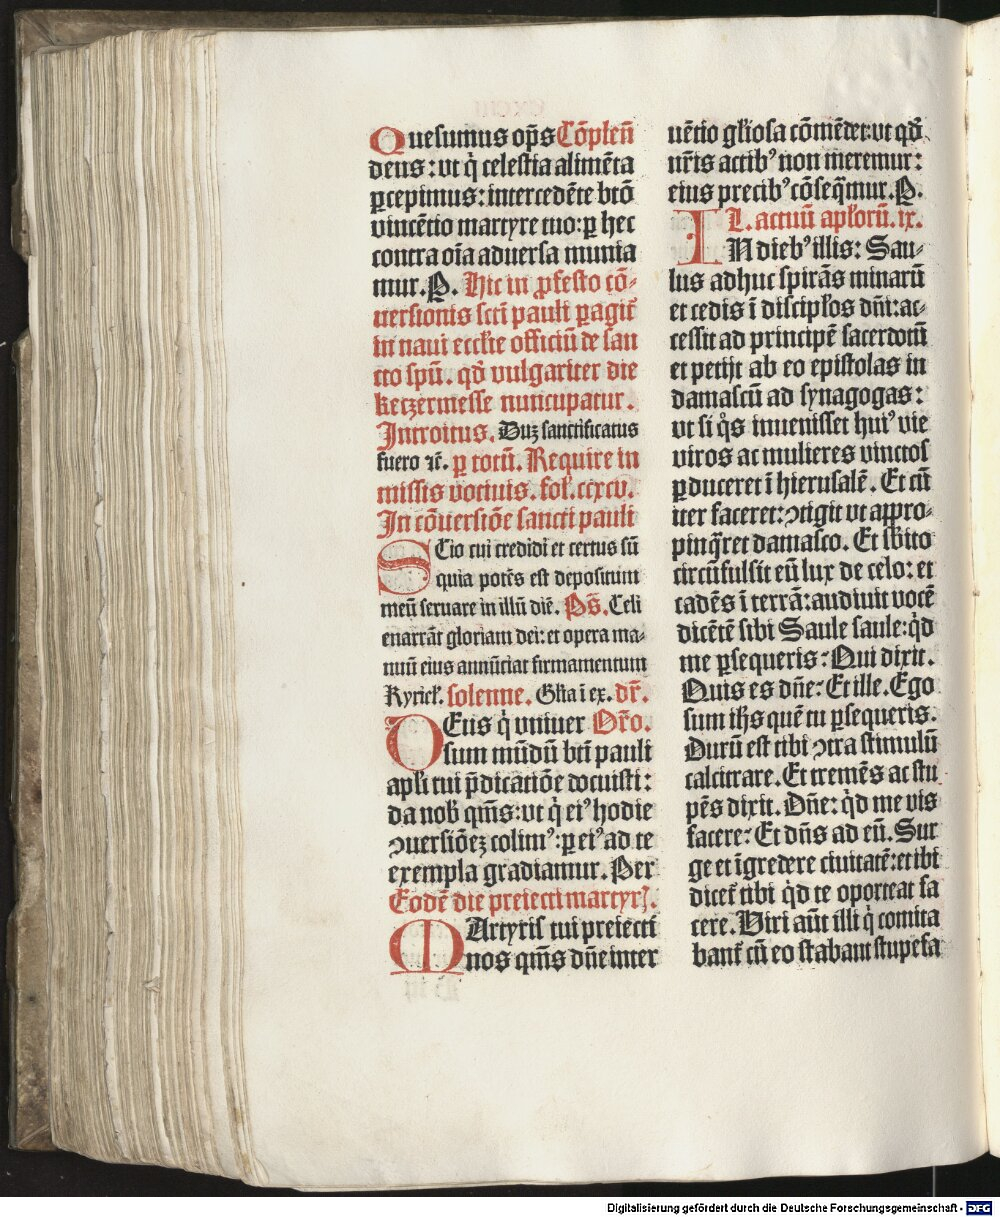 Quesumus op̄s Cōplen̄
deus: vt q̇ celestia alimēta
ꝑcepimus: intercedēte btō
vincētio martyre tuo: ꝑ hec
contra oīa aduersa munia
mur. P. Hic in ꝓfesto cō-
uersionis scti pauli ꝑagit᷑
in naui eccl̄ie officiū de san
cto spū. qđ vulgariter die
keczermesse nuncupatur.
Introitus. Duz sanctificatus
fuero ⁊c̄. ꝑ totū. Require in
missis votiuis. fol. ccxcv.
In cōuersiōe sancti pauli
SCio cui credidi et certus sū
quia potēs est depositum
meū seruare in illū diē. Ps̄. Celi
enarrāt gloriam dei: et opera ma-
nuū eius annūciat firmamentum
Kyriel. solenne. Glīa ī ex. dr̄.
DEus q̇ vniuer Or̄o.
sum mūdū btī pauli
apl̄i tui p̄dicatiōe docuisti:
da nob̄ qm̄s: vt q̇ eiꝰ hodie
ꝯuersiōeꝫ colimꝰ: ꝑ eiꝰ ad te
exempla gradiamur. Per
Eodē die preiecti martyrꝭ.
MArtyris tui preiecti
nos qm̄s dn̄e inter
uētio gl̄iosa cōmēdet: vt qđ
nr̄is actibꝰ non meremur:
eius precibꝰ cōseq̄mur. P.
L. actuū apl̄orū. ix.
IN diebꝰ illis: Sau-
lus adhuc spirās minarū
et cedis ī discipl̄os dn̄i: ac-
cessit ad principē sacerdotū
et petijt ab eo epistolas in
damascū ad synagogas:
vt si q̊s inuenisset huiꝰ vie
viros ac mulieres vinctos
ꝑduceret ī hierusalē. Et cū
iter faceret: ꝯtigit vt appro-
pinq̄ret damasco. Et sb̄ito
circūfulsit eū lux de celo: et
cadēs ī terrā: audiuit vocē
dicētē sibi Saule saule: q̇d
me ꝑsequeris? Qui dixit.
Quis es dn̄e? Et ille. Ego
sum ih̄s quē tu ꝑsequeris.
Durū est tibi ꝯtra stimulū
calcitrare. Et tremēs ac stu
pēs dixit. Dn̄e: q̇d me vis
facere? Et dn̄s ad eū. Sur
ge et īgredere ciuitatē: et ibi
dicet᷑ tibi q̇d te oporteat fa
cere. Viri aūt illi q̇ comita
bant᷑ cū eo stabant stupefa
Digitalisierung gefördert durch die Deutsche Forschungsgemeinschaft - DFG